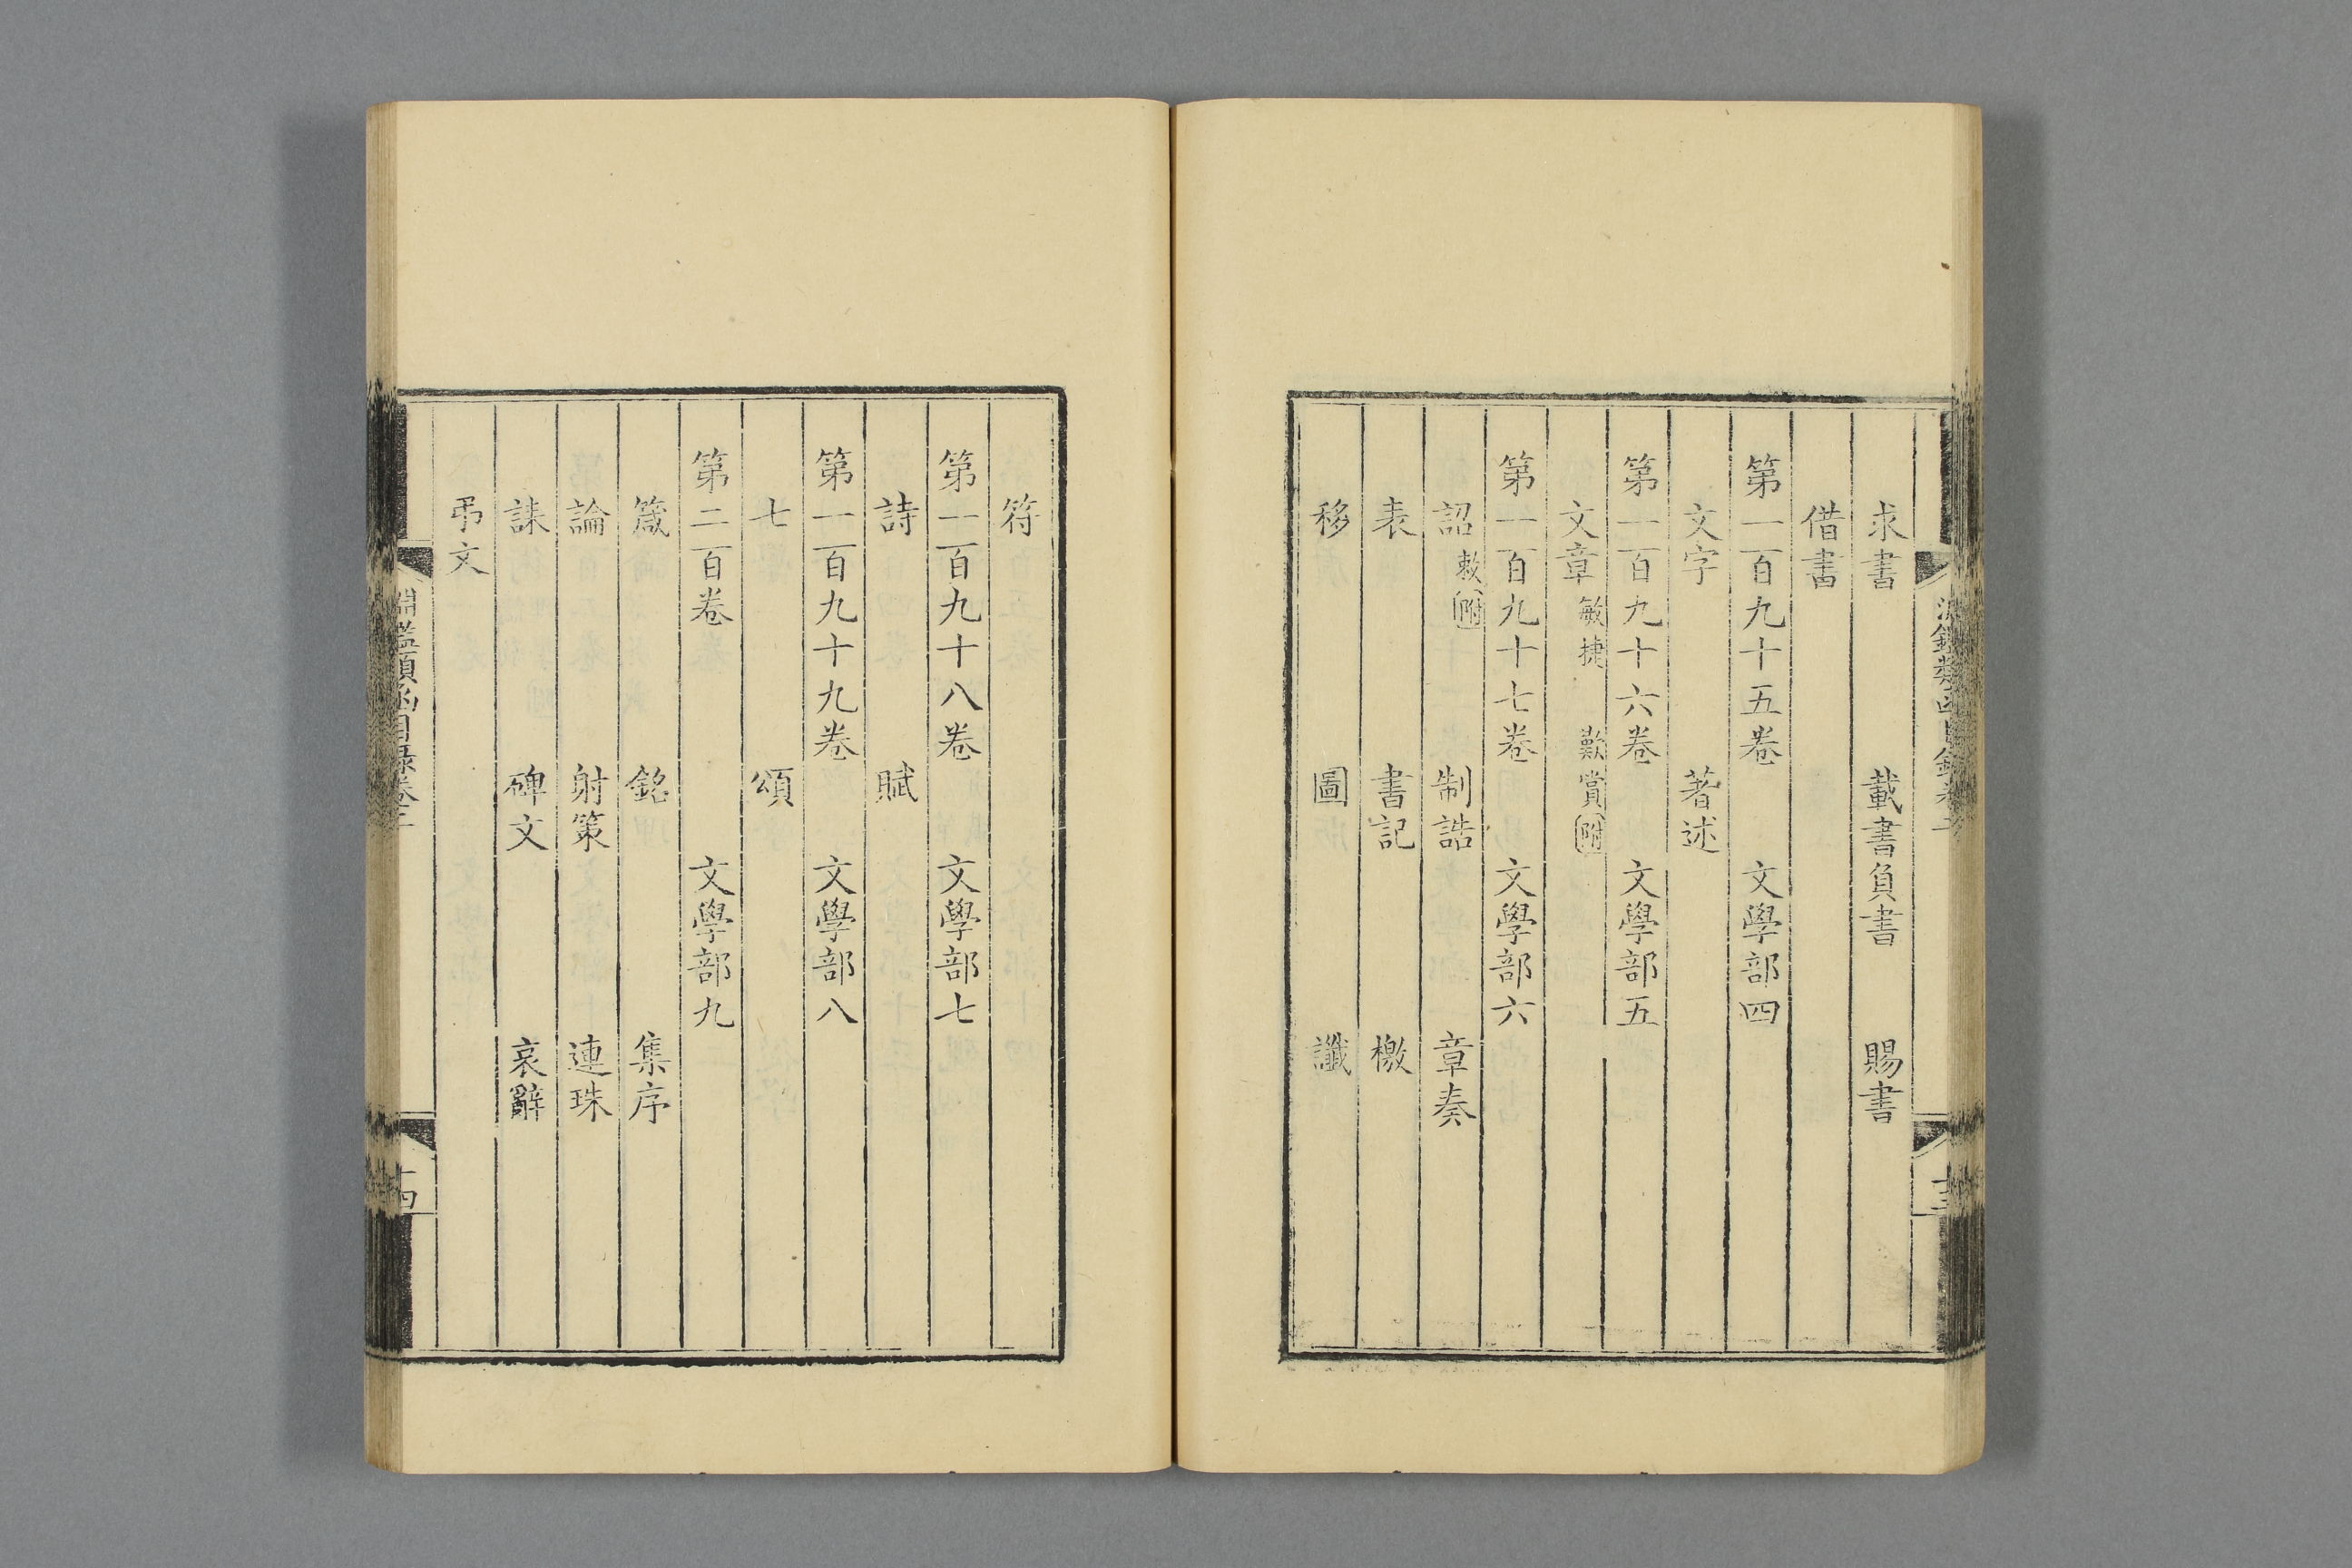 求書 載書負書 賜書
借書
第一百九十五卷 文學部四
文字 著述
第一百九十六卷 文學部五
文章 敏捷 歎賞 附
第一百九十七卷 文學部六
詔 敕附 制誥 章奏
表 書記 檄
移 圖 讖
符
第一百九十八卷 文學部七
詩 賦
第一百九十九卷 文學部八
七 頌
第二百卷 文學部九
箴 銘 集序
論 射策 連珠
誄 碑文 哀辭
弔文
淵鑑類函目錄卷三
十四